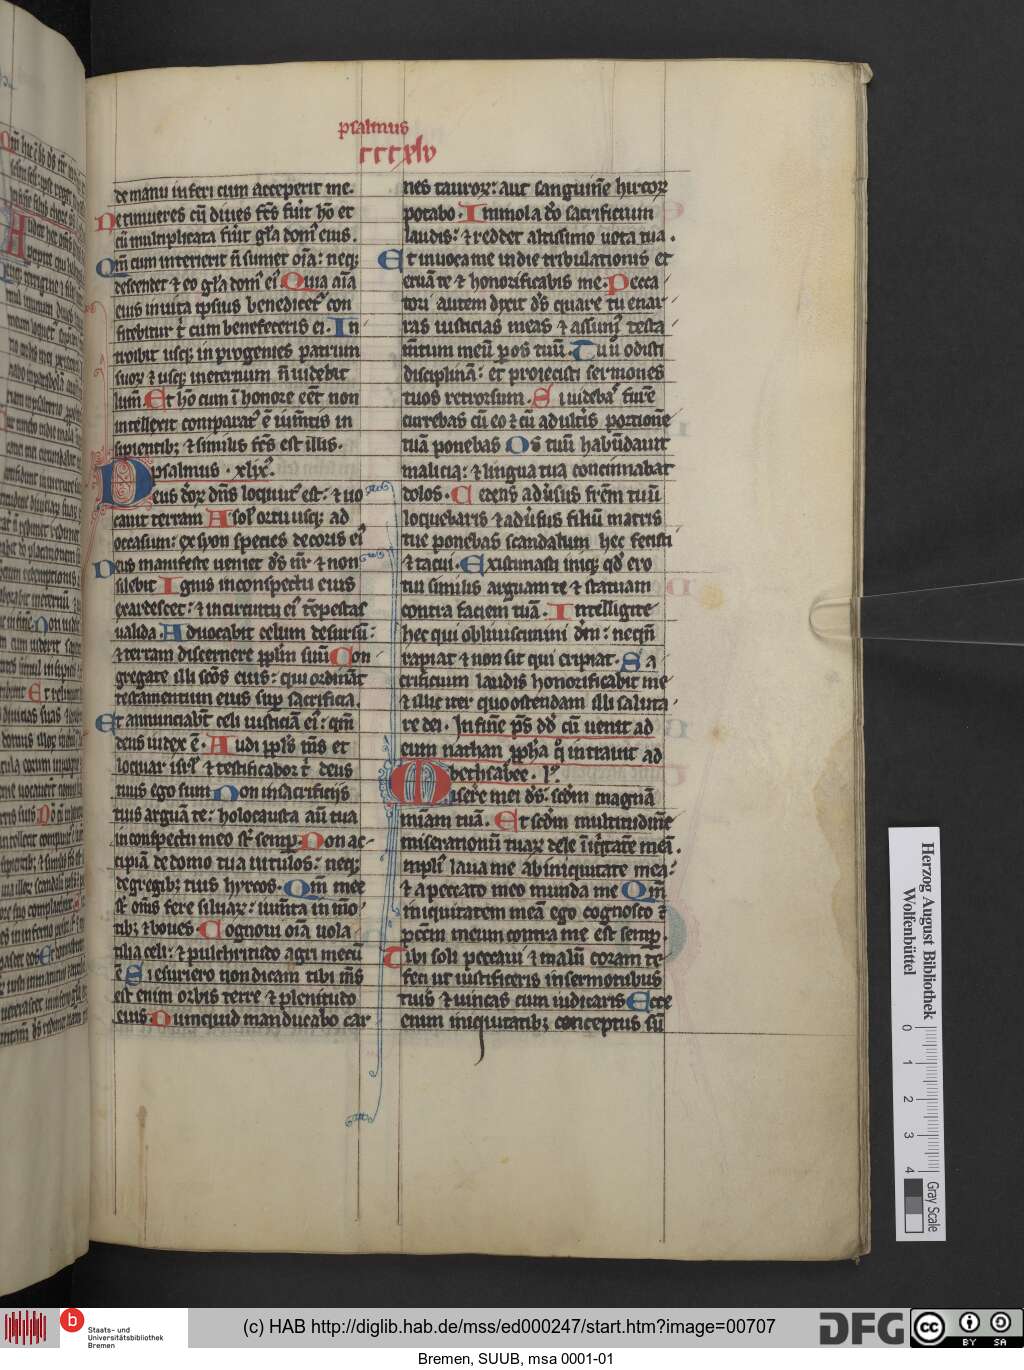 psalmus
CCCxlv
de manu inferi cum acceperit me.
Ne timueris cū dives fc̄s fuit̉ hō et
cū multiplicata fuit̉ gl̄a dom̉ eius.
Qm̄ cum interierit n̄ sumet oīa: neqꝫ
descendet ⁊ eo gl̄a dom̉ ei᷒ Quia aīa
eius in vita ipsius benedicet᷑ con
fitebitur t̉ cum benefeceris ei. In
troibit usqꝫ in progenies patrum
suoꝝ ⁊ usqꝫ in eternum n̄ videbit
lum̄. Et hō cum ī honore eēt non
intellexit comparat᷒ ē ium̄tis in
sipientibꝫ ⁊ similis fc̄s est illis.
psalmus . xlix᷒.
Deus dōꝝ dn̄s locutu᷒ est: ⁊ vo
cavit terram A sol̉ ortu usqꝫ ad
occasum: ex syon species decoris ei᷒
Deus manifeste veniet ds̄ nr̄ ⁊ non
silebit Ignis in conspectu eius
exardescet: ⁊ in circuitu ei᷒ tēpestas
valida Advocabit celum desursū:
⁊ terram discernere ppl̄m suū Con
gregate illi scōs eius: qui ordināt
testamentum eius sup̄ sacrificia.
Et annunciabt̄ celi iusticiā ei᷒: qm̄
deus iudex ē. Audi ppl̄s m̄s et
loquar isrl̄ ⁊ testificabor t̉ deus
tuus ego sum Non in sacrificijs
tuis arguā te: holocausta aū tua
in conspectu meo st̄ semp̄. Non ac
cipiā de domo tua vitulos: neqꝫ
de gregibꝫ tuis hyrcos. Qm̄ mee
st̄ om̄s fere silvaꝝ: ium̄ta in mō
tibꝫ ⁊ boves. Cognovi oīa vola
tilia celi: ⁊ pulchritudo agri mecū
ē Si esuriero non dicam tibi m̄s
est enim orbis terre ⁊ plenitudo
eius Nunquid manducabo car
nes tauroꝝ: aut sanguinē hircoꝝ
potabo. Immola dō sacrificium
laudis: ⁊ redde altissimo vota tua.
Et invoca me in die tribulationis et
eruā te ⁊ honorificabis me. Pecca
tori autem dixit ds̄ quare tu enar
ras iusticias meas ⁊ assum̉ testa
m̄tum meū p̄ os tuū. Tu v̉o odisti
disciplinā: et proiecisti sermones
tuos retrorsum. Si videba᷒ furē
currebas cū eo ⁊ cū adult̉is portionē
tuā ponebas Os tuū habūdavit
malicia: ⁊ lingua tua concinnabat
dolos. Sedens adv̉sus frēm tuū
loquebaris ⁊ adv̉sus filiū matris
tue ponebas scandalum hec fecisti
⁊ tacui. Existimasti iniqꝫ qd̄ ero
tui similis arguam te ⁊ statuam
contra faciem tuā. Intelligite
hec qui obliviscimini dm̄: neqn̄
rapiat ⁊ non sit qui eripiat. Sa
crificium laudis honorificabit me
⁊ illic iter quo ostendam illi saluta
re dei. In finē ps̄ dd̄ cū venit ad
eum nathan ppha qn̄ intravit ad
bethsabee. l᷒.
Miserē mei ds̄: scd̄m magnā
miām tuā. Et scd̄m multitudinē
miserationū tuaꝝ dele īiq̉tatē meā.
Ampli᷒ lava me ab iniquitate mea:
⁊ a peccato meo munda me Qm̄
iniquitatem meā ego cognosco ⁊
pcc̄m meum contra me est semp̄.
Tibi soli peccavi ⁊ malū coram te
feci ut iustificeris in sermonibus
tuis ⁊ vincas cum iudicaris Ecce
enim iniquitatibꝫ conceptus sū
Herzog August Bibliothek
Wolfenbüttel
0 1 2 3 4
Gray Scale
HAB
b Staats- und
Universitätsbibliothek
Bremen
(c) HAB http://diglib.hab.de/mss/ed000247/start.htm?image=00707
DFG
cc BY SA
Bremen, SUUB, msa 0001-01